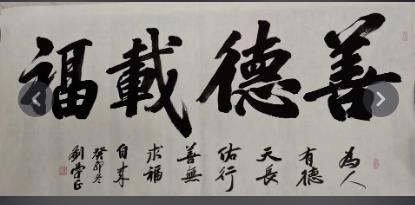 善德載福
為人
有德
天長
佑行
善無
求福
自來
癸卯冬
劉